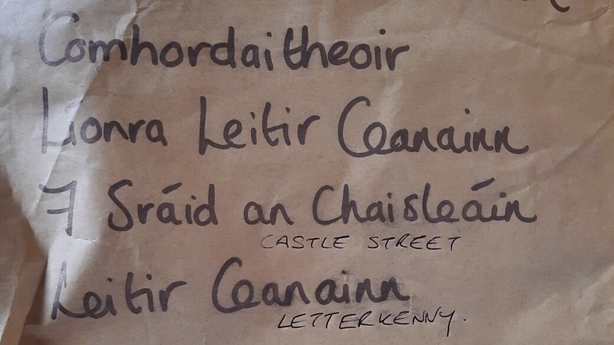 Comhordaitheoir
Líonra Leitir Ceanainn
7 Sráid an Chaisleáin
CASTLE STREET
Leitir Ceanainn
LETTERKENNY.